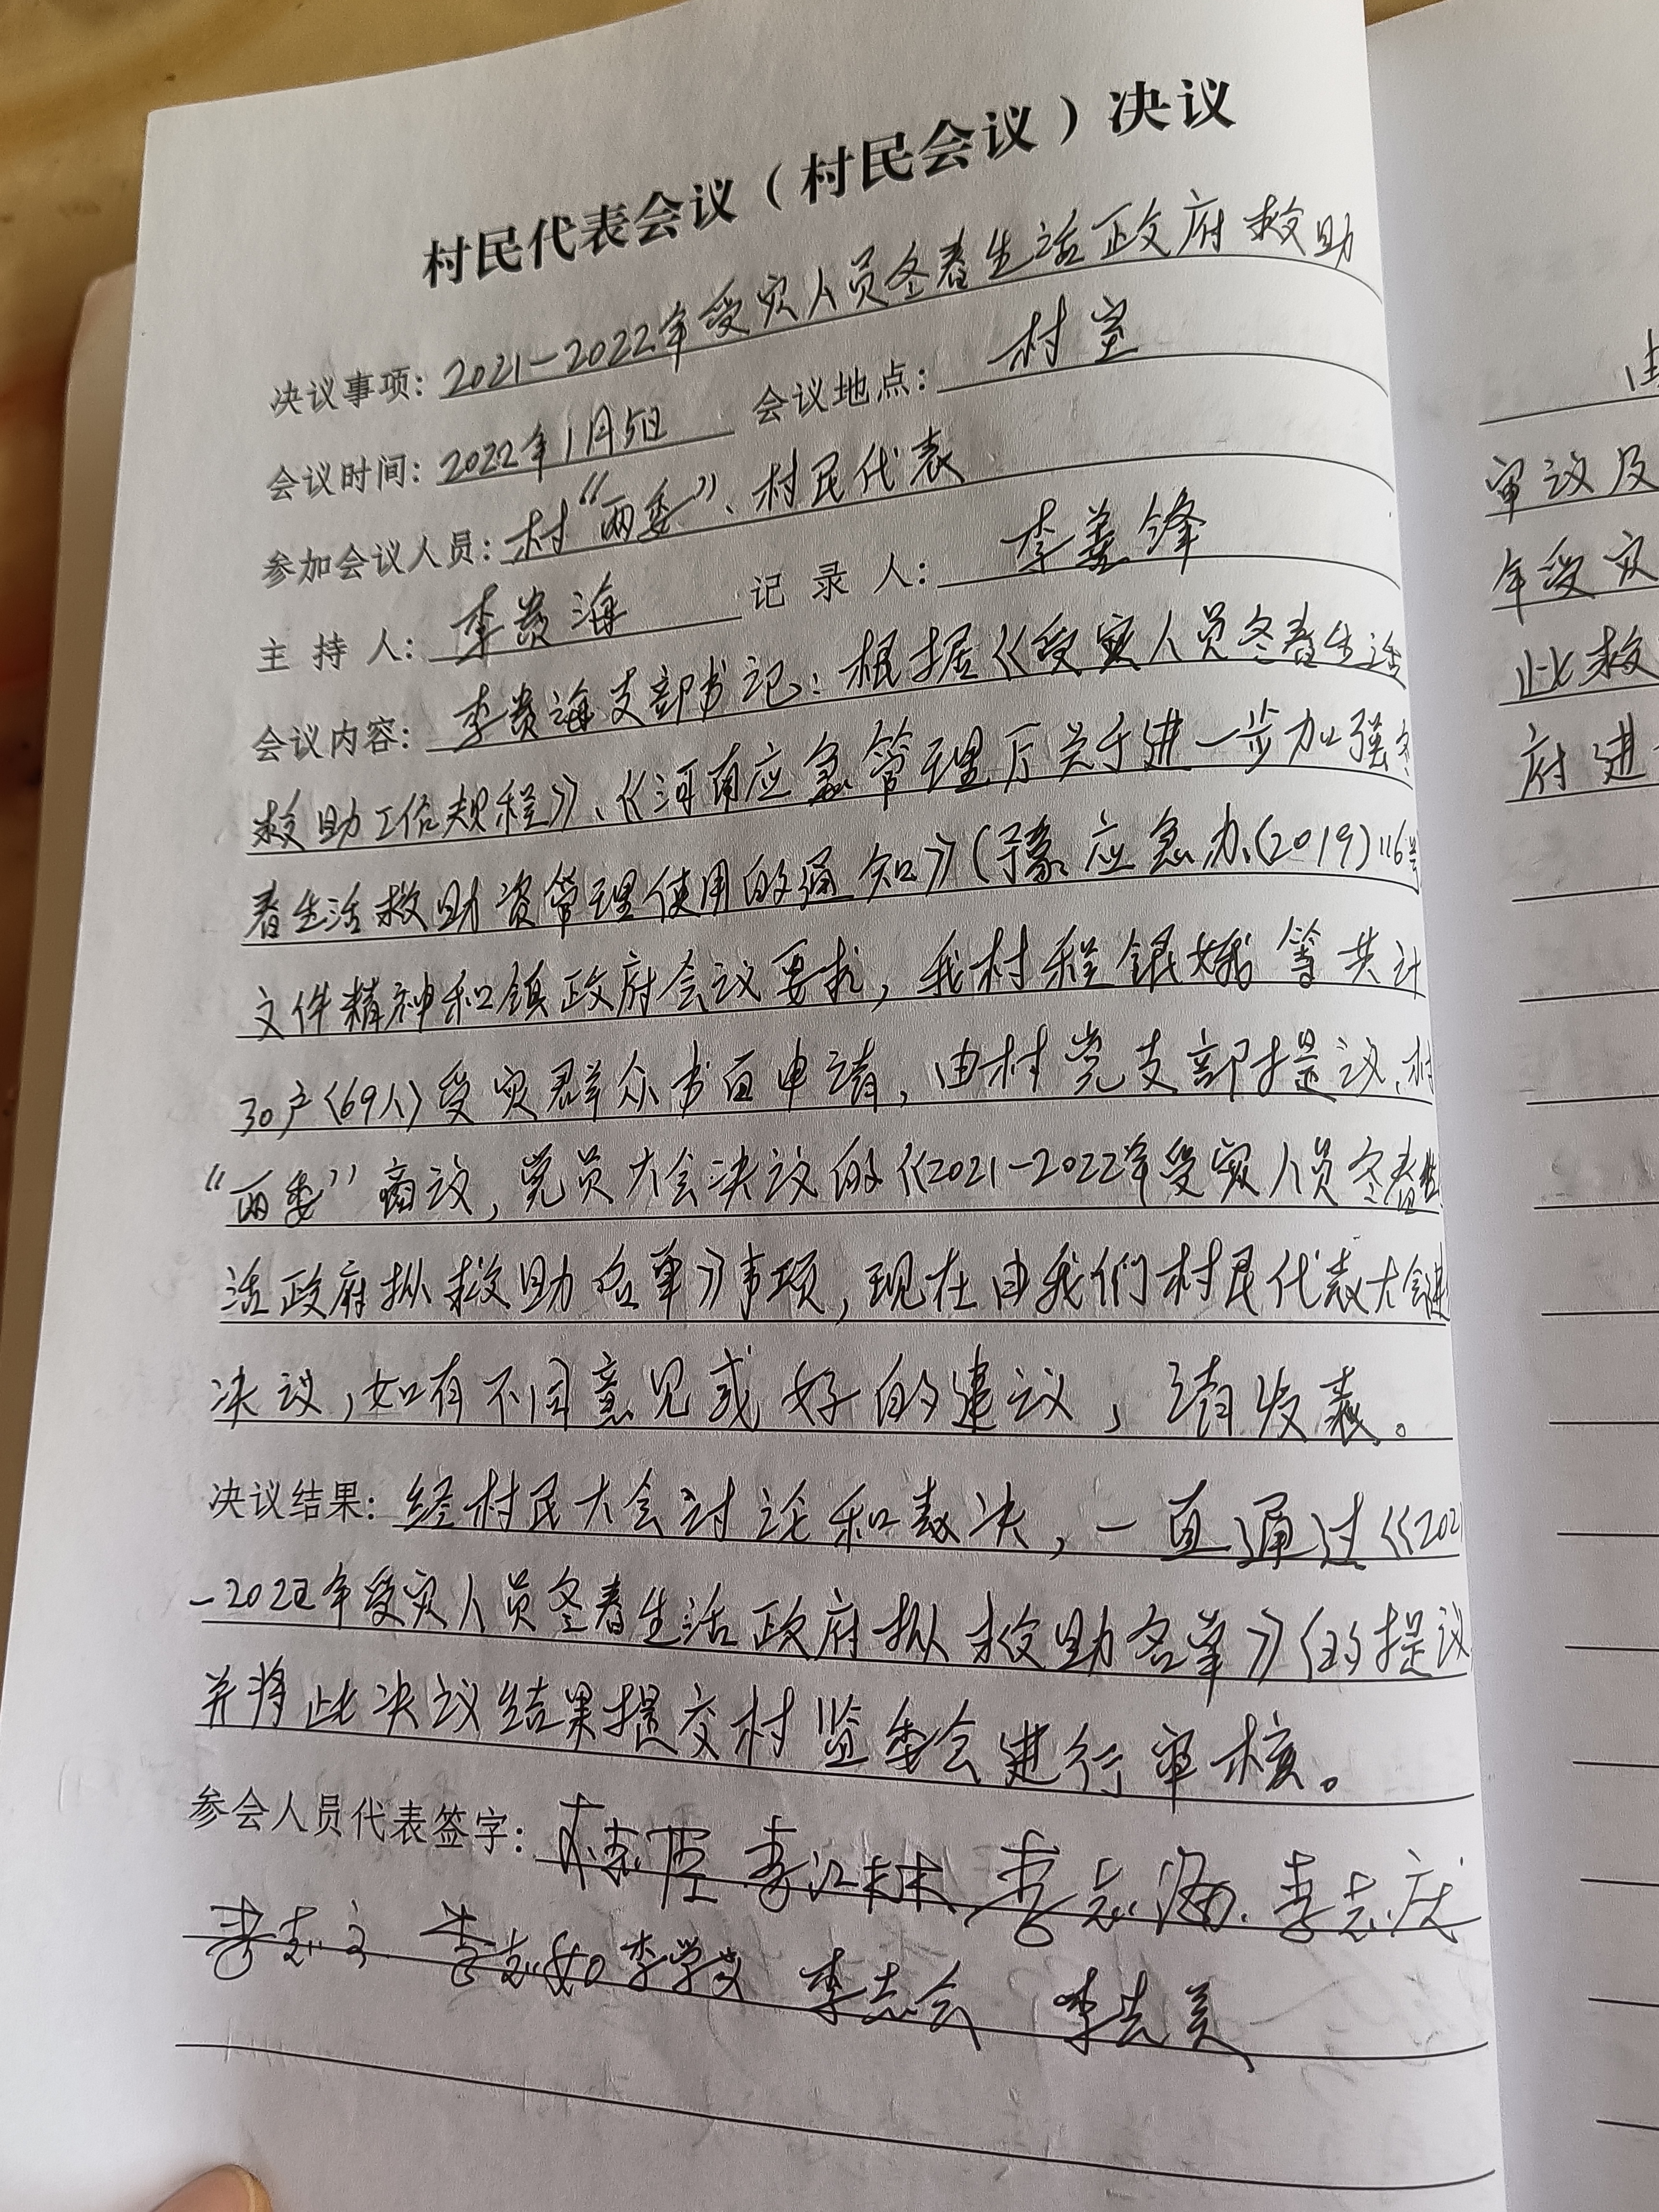 村民代表会议（村民会议）决议
决议事项：2021-2022年受灾人员冬春生活政府救助
会议时间：2022年1月5日 会议地点：村室
参加会议人员：村“两委”、村民代表
主持人：李贵海 记录人：李善锋
会议内容：李贵海支部书记：根据《受灾人员冬春生活
救助工作规程》、《河南应急管理厅关于进一步加强冬
春生活救助资管理使用的通知》(豫应急办(2019)116号
文件精神和镇政府会议要求，我村程银娥等共计
30户(69人)受灾群众书面申请，由村党支部提议、村
“两委”商议，党员大会决议的《2021-2022年受灾人员冬春生
活政府拟救助名单》事项，现在由我们村民代表大会进
决议，如有不同意见或好的建议，请发表。
决议结果：经村民大会讨论和表决，一直通过《202
-2022年受灾人员冬春生活政府拟救助名单》的提议
并将此决议结果提交村监委会进行审核。
参会人员代表签字： 李江林 李志海 李志庆
李学义 李志会 李先美
审议及
年受灾
此救
府进